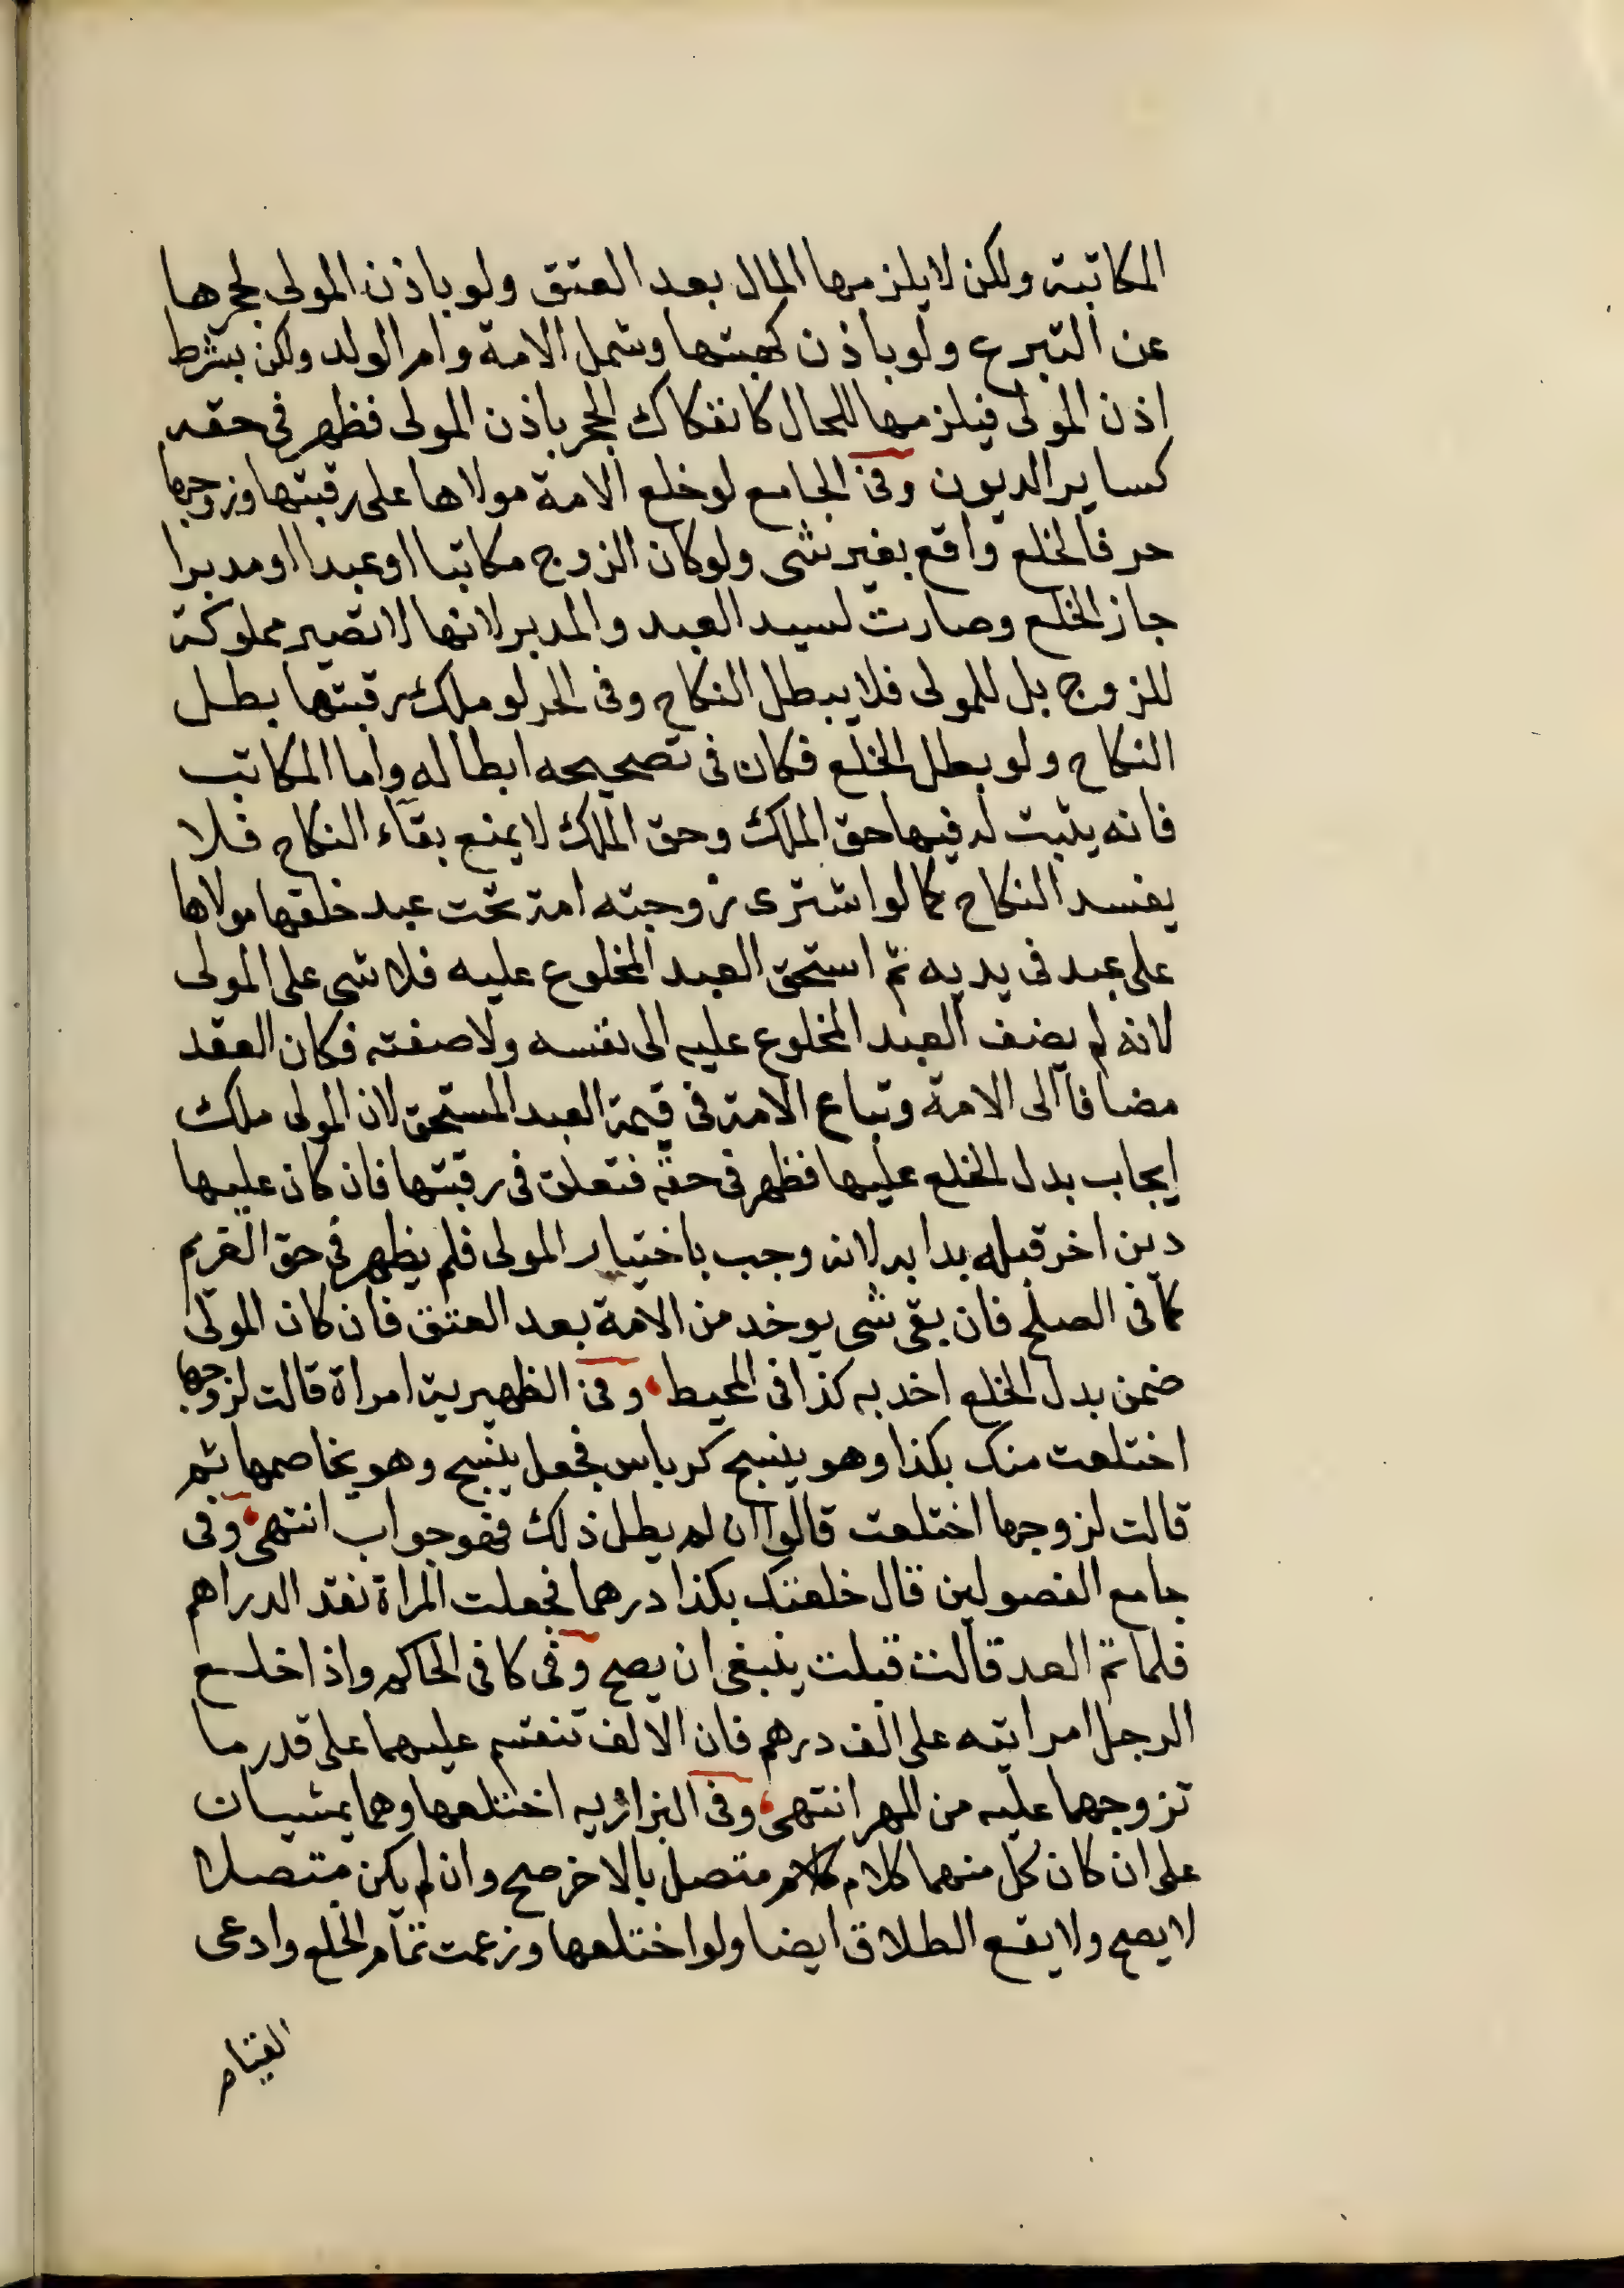 المكاتبة ولكن لا يلزمها المال بعد العتق ولو باذن المولى لحجرها
عن التبرع ولو باذن كهبتها وشمل الامة وام الولد ولكن بشرط
اذن المولى فيلزمها للحال كانفكاك الحجر باذن المولى فظهر فى حقه
كساير الديون وفى الجامع لو خلع الامة مولاها على رقبتها وزوجها
حر فالخلع واقع بغير شى ولو كان الزوج مكاتبا او عبدا او مدبرا
جاز الخلع وصارت لسيد العبد والمدبر لانها لا تصير مملوكة
للزوج بل للمولى فلا يبطل النكاح وفى الحر لو ملك رقبتها بطل
النكاح ولو بطل الخلع فكان فى تصحيحه ابطاله واما المكاتب
فانه يثبت له فيها حق الملك وحق الملك لا يمنع بقاء النكاح فلا
يفسد النكاح كما لو اشترى زوجته امة تحت عبد خلعها مولاها
على عبد فى يديه ثم استحق العبد المخلوع عليه فلا شى على المولى
لانه لم يضف العبد المخلوع عليه الى نفسه ولا صفته فكان العقد
مضافا الى الامة وتباع الامة فى قيمة العبد المستحق لان المولى ملك
ايجاب بدل الخلع عليها فظهر فى حقه فتعلق فى رقبتها فان كان عليها
دين اخر قبله بدا به لانه وجب باختيار المولى فلم يظهر فى حق الغريم
كما فى الصلح فان بقى شى يوخد من الامة بعد العتق فان كان المولى
ضمن بدل الخلع اخد به كذا فى المحيط وفى الظهيرية امراة قالت لزوجها
اختلعت منك بكذا وهو ينسج كرباس فجعل ينسج وهو يخاصمها ثم
قالت لزوجها اختلعت قالوا ان لم يطل ذلك فهو جواب انتهى وفى
جامع الفصولين قال خلعتك بكذا درهما فجعلت المراة نقد الدراهم
فلما تم العد قالت قبلت ينبغى ان يصح وفى كافى الحاكم واذا خلع
الرجل امراتيه على الف درهم فان الالف تنقسم عليهما على قدر ما
تزوجهما عليه من المهر انتهى وفى البزازيه اختلعها وهما يمشيان
على ان كان كل منهما كلام كلام متصل بالاخر صح وان لم يكن متصلا
لا يصح ولا يقع الطلاق ايضا ولو اختلعها وزعمت تمام الخلع وادعى
القيام